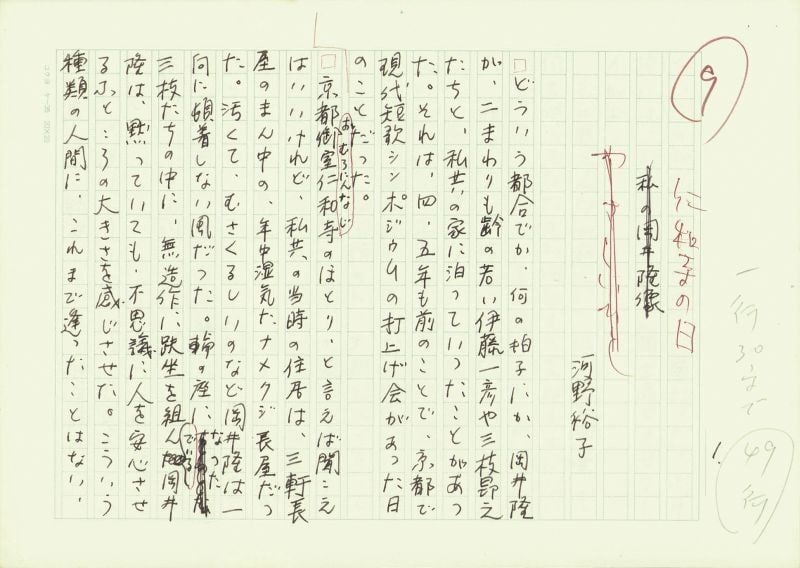 9
一行30まで
49行
仁和寺の日
私の岡井隆像
やさしいひと
河野裕子
どういう都合でか、何の拍子にか、岡井隆
が、二まわりも齢の若い伊藤一彦や三枝昻之
たちと、私共の家に泊っていったことがあっ
た。それは、四、五年も前のことで、京都で
現代短歌シンポジウムの打上げ会があった日
のことだった。
京都御室仁和寺のほとり、と言えば聞こえ
おむろにんなじ
はいいけれど、私共の当時の住居は、三軒長
屋のまん中の、年中湿気たナメクジ長屋だっ
た。汚くて、むさくるしいのなど岡井隆は一
向に頓着しない風だった。輪の座になった
三枝たちの中に、無造作に趺坐を組んでいる岡井
隆は、黙っていても、不思議に人を安心させ
るふところの大きさを感じさせた。こういう
種類の人間に、これまで逢ったことはない、